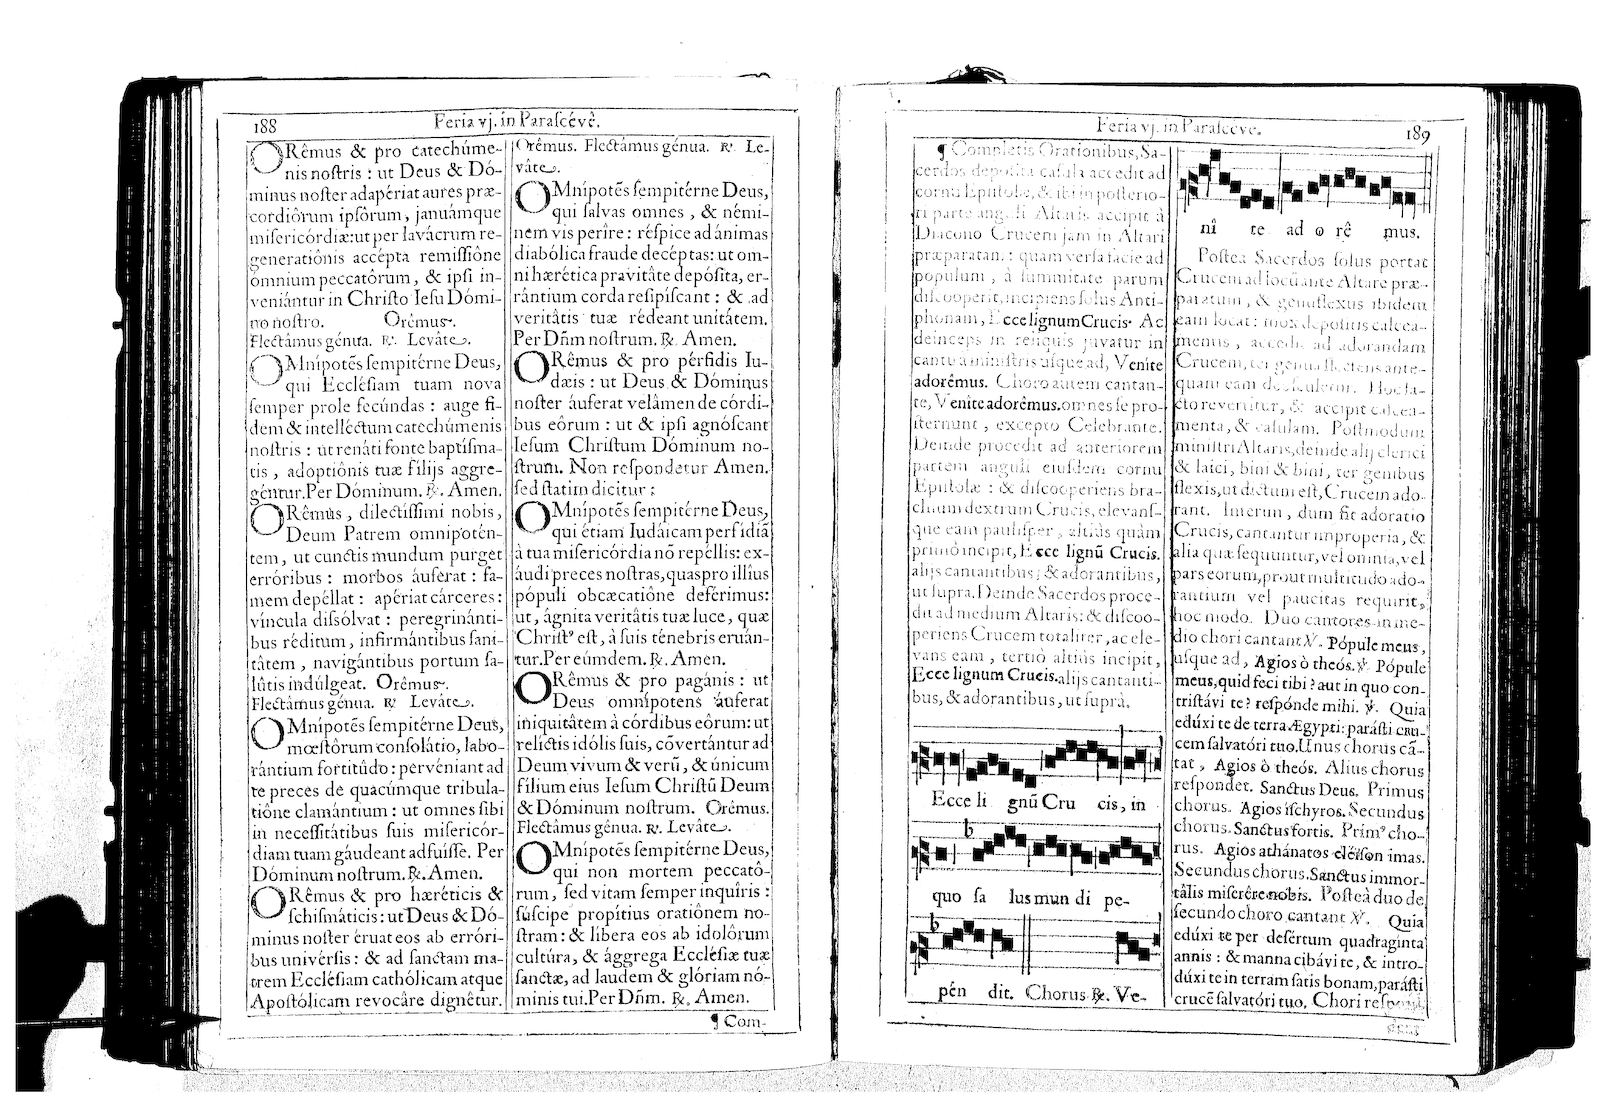 188
Feria vj. in Paraſcévè.
ORêmus & pro catechúme-
nis noſtris : ut Deus & Dó-
minus noſter adapériat aures præ-
cordiôrum ipſôrum, januámque
miſericórdiæ: ut per lavácrum re-
generatiônis accépta remiſſiône
ómnium peccatôrum, & ipſi in-
veniántur in Chriſto Ieſu Dómi-
no noſtro. Orêmus.
Flectâmus génua. ℟. Levâte.
OMnípotẽs ſempitérne Deus,
qui Eccléſiam tuam nova
ſemper prole fecúndas : auge fi-
dem & intelléctum catechúmenis
noſtris : ut renáti fonte baptíſma-
tis , adoptiônis tuæ fílijs aggre-
géntur. Per Dóminum. ℟. Amen.
ORêmus , dilectíſſimi nobis,
Deum Patrem omnipotén-
tem , ut cunctis mundum purget
erróribus : morbos áuferat : fa-
mem depéllat : apériat cárceres :
víncula diſsólvat : peregrinánti-
bus réditum , infirmántibus ſani-
tâtem , navigántibus portum ſa-
lûtis indúlgeat. Orêmus.
Flectâmus génua. ℟. Levâte.
OMnípotẽs ſempitérne Deus,
mœſtôrum conſolátio, labo-
rántium fortitûdo : pervéniant ad
te preces de quacúmque tribula-
tiône clamántium : ut omnes ſibi
in neceſſitátibus ſuis miſericór-
diam tuam gáudeant adfuíſſe. Per
Dóminum noſtrum. ℟. Amen.
ORêmus & pro hæréticis &
ſchiſmáticis : ut Deus & Dó-
minus noſter éruat eos ab erróri-
bus univérſis : & ad ſanctam ma-
trem Eccléſiam cathólicam atque
Apoſtólicam revocâre dignêtur.
Orêmus. Flectâmus génua. ℟. Le-
vâte.
OMnípotẽs ſempitérne Deus,
qui ſalvas omnes , & némi-
nem vis períre : réſpice ad ánimas
diabólica fraude decéptas: ut om-
ni hærética pravitâte depóſita, er-
rántium corda reſipíſcant : & ad
veritâtis tuæ rédeant unitátem.
Per Dñm noſtrum. ℟. Amen.
ORêmus & pro pérfidis Iu-
dæis : ut Deus & Dóminus
noſter áuferat velâmen de córdi-
bus eôrum : ut & ipſi agnóſcant
Ieſum Chriſtum Dóminum no-
ſtrum. Non reſpondetur Amen.
ſed ſtatim dicitur :
OMnípotẽs ſempitérne Deus,
qui étiam Iudáicam perfídiã
à tua miſericórdia nõ repéllis: ex-
áudi preces noſtras, quas pro illíus
pópuli obcæcatiône deférimus:
ut, ágnita veritâtis tuæ luce, quæ
Chriſtꝰ eſt, à ſuis ténebris eruán-
tur. Per eúmdem. ℟. Amen.
ORêmus & pro pagánis : ut
Deus omnípotens áuferat
iniquitâtem à córdibus eôrum: ut
relíctis idólis ſuis, cõvertántur ad
Deum vivum & verũ, & únicum
Fílium eius Ieſum Chriſtũ Deum
& Dóminum noſtrum. Orêmus.
Flectâmus génua. ℟. Levâte.
OMnípotẽs ſempitérne Deus,
qui non mortem peccatô-
rum , ſed vitam ſemper inquíris :
ſúſcipe propítius oratiônem no-
ſtram : & líbera eos ab idolôrum
cultúra, & ággrega Eccléſiæ tuæ
ſanctæ, ad laudem & glóriam nó-
minis tui. Per Dñm. ℟. Amen.
¶ Com-
Feria vj. in Paraſceve.
189
¶ Completis Orationibus, Sa-
cerdos depoſita caſula accedit ad
cornu Epiſtolæ, & ibi in poſterio-
ri parte anguli Altaris accipit à
Diacono Crucem jam in Altari
præparatam : quam verſa facie ad
populum , à ſummitate parum
diſcooperit, incipiens ſolus Anti-
phonam, Ecce lignum Crucis. Ac
deinceps in reliquis juvatur in
cantu à miniſtris uſque ad, Venite
adorêmus. Choro autem cantan-
te, Venite adorêmus. omnes ſe pro-
ſternunt , excepto Celebrante.
Deinde procedit ad anteriorem
partem anguli eiuſdem cornu
Epiſtolæ : & diſcooperiens bra-
chium dextrum Crucis, elevanſ-
que eam pauliſper , altiùs quàm
primò incipit, Ecce lignũ Crucis.
alijs cantantibus, & adorantibus,
ut ſupra. Deinde Sacerdos proce-
dit ad medium Altaris: & diſcoo-
periens Crucem totaliter, ac ele-
vans eam , tertiò altiùs incipit,
Ecce lignum Crucis. alijs cantanti-
bus, & adorantibus, ut ſuprà.
Ecce li gnũ Cru cis, in
quo ſa lus mun di pe-
pén dit. Chorus ℟. Ve-
nî te ad o rê mus.
Poſtea Sacerdos ſolus portat
Crucem ad locũ ante Altare præ-
paratum , & genuflexus ibidem
eam locat : mox depoſitis calcea-
mentis , accedit ad adorandam
Crucem, ter genua flectens ante-
quam eam deoſculetur. Hoc fa-
cto revertitur, & accipit calcea-
menta, & caſulam. Poſtmodum
miniſtri Altaris, deinde alij clerici
& laici, bini & bini, ter genibus
flexis, ut dictum eſt, Crucem ado-
rant. Interim , dum fit adoratio
Crucis, cantantur improperia, &
alia quæ ſequuntur, vel omnia, vel
pars eorum, prout multitudo ado-
rantium vel paucitas requirit,
hoc modo. Duo cantores in me-
dio chori cantant ℣. Pópule meus,
uſque ad , Agios ò theós. ℣. Pópule
meus, quid feci tibi ? aut in quo con-
triſtávi te ? reſpónde mihi. ℣. Quia
edúxi te de terra Ægypti: paráſti cru-
cem ſalvatóri tuo. Unus chorus cã-
tat , Agios ò theós. Alius chorus
reſpondet. Sanctus Deus. Primus
chorus. Agios iſchyros. Secundus
chorus. Sanctus fortis. Primꝰ cho-
rus. Agios athánatos eléiſon imas.
Secundus chorus. Sanctus immor-
tâlis miſerêre nobis. Poſteà duo de
ſecundo choro cantant ℣. Quia
edúxi te per deſértum quadraginta
annis : & manna cibávi te, & intro-
dúxi te in terram ſatis bonam, paráſti
crucẽ ſalvatóri tuo. Chori